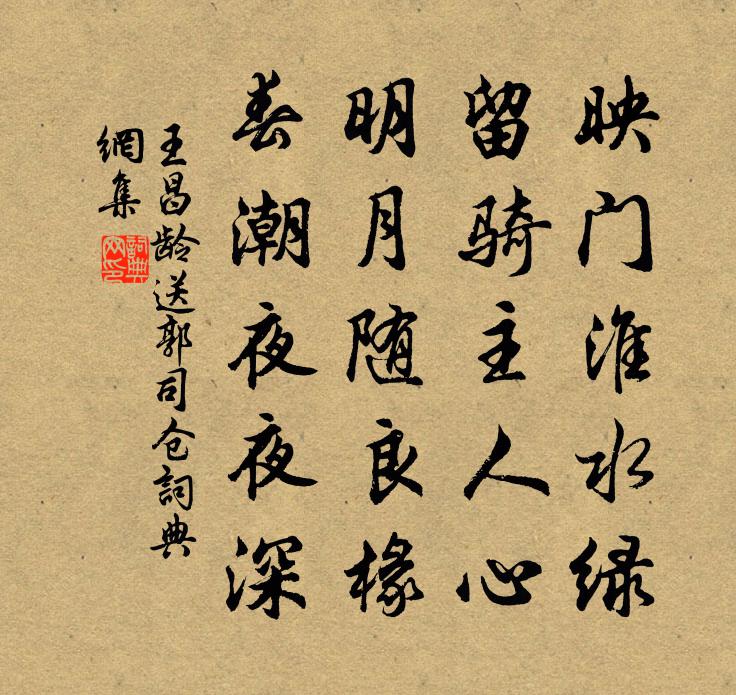 映门淮水绿
留骑主人心
明月随良椽
春潮夜夜深
王昌龄送郭司仓詞典
網集
詞典
网印